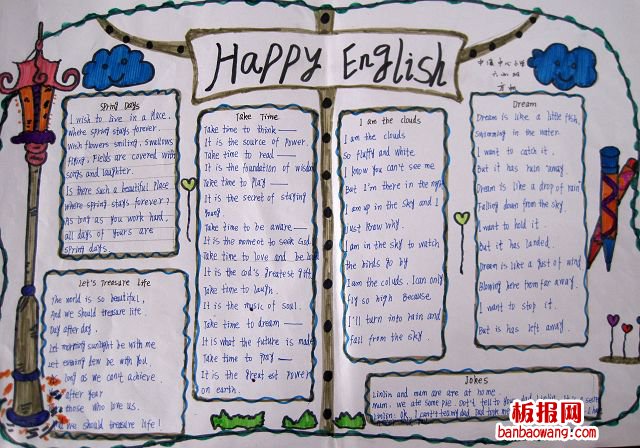 Happy English
Spring Days
I wish to live in a place.
Where spring stays forever.
Wish flowers smiling, swallows
flying, Fields are covered with
songs and laughter.
Is there such a beautiful place
where spring stays forever?
As long as you work hard,
all days of yours are
spring days.
Let's Treasure Life
The world is so beautiful,
And we should treasure life.
Day after day.
Let morning sunlight be with me
Let evening dew be with you.
long as we can't achieve.
after year
those who love us.
we should treasure life!
Take Time
Take time to think——
It is the source of power.
Take time to read——
It is the foundation of wisdom
Take time to play——
It is the secret of staying
Young.
Take time to be aware——
It is the moment to seek God.
Take time to love and be
It is the God's greatest gift.
Take time to laugh.
It is the music of soul.
Take time to dream——
It is what the future is made
Take time to pray——
It is the greatest power
on earth.
I am the clouds
I am the clouds
So fluffy and white
I know you can't see me
But I'm there in the night
I am up in the sky and I
just know why.
I am in the sky to watch
the birds go by
I am the coluds. I can only
fly so high Because
I'll turn into rain and
fall from the sky.
中心小学
Dream
Dream is like a little fish
Swimming in the water.
I want to catch it.
But it has run away.
Dream is like a drop of rain
Falling down from the sky.
I want to hold it.
But it has landed.
Dream is like a gust of wind
Blowing here from far away.
I want to stop it.
But is has left away.
Jokes
Linlin and mum are at home.
Mum, we ate some pie. Don't tell
Linlin: OK. I can't tell my dad.
板报网
banbaowang.com